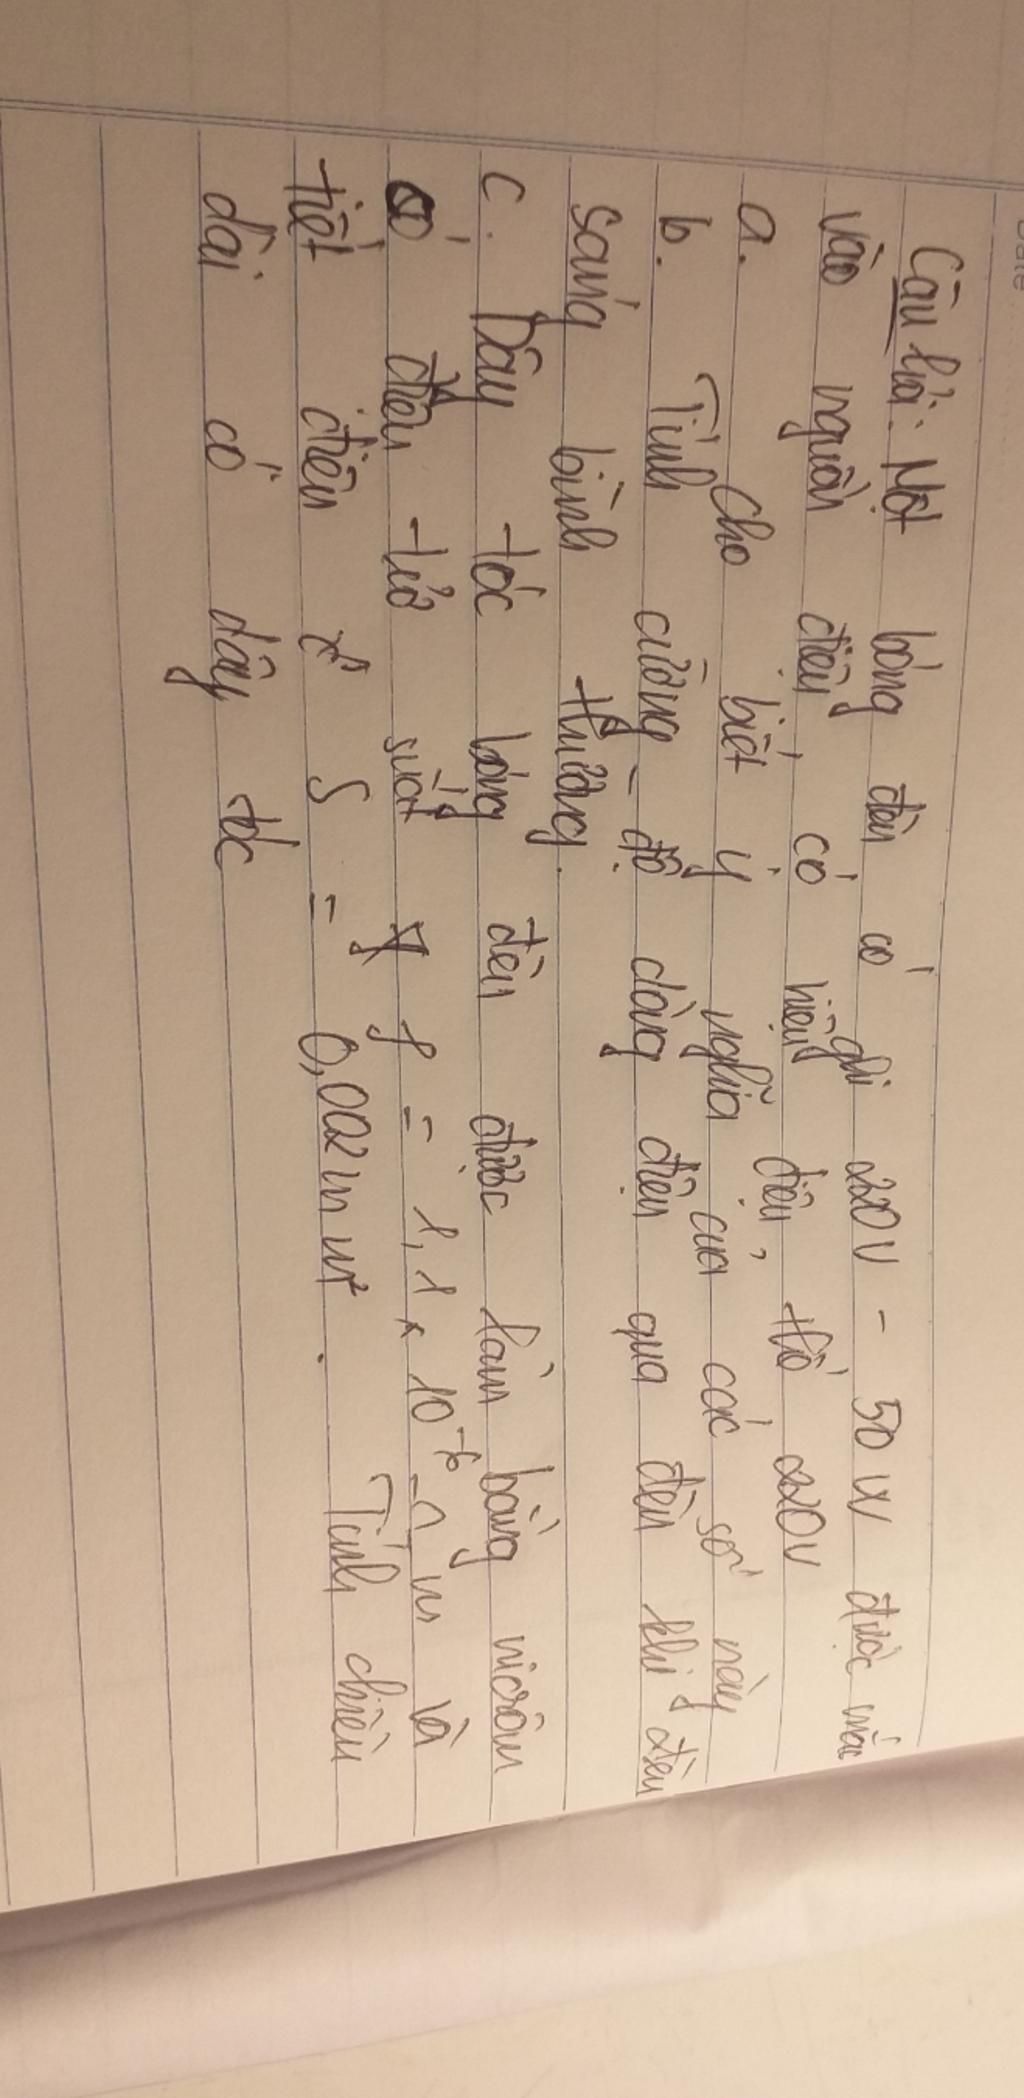 Câu hỏi: Một bóng đèn có ghi 220V - 50W được mắc
vào nguồn điện có hiệu điện thế 220V
a. Cho biết ý nghĩa của các số này
b. Tính cường độ dòng điện qua đèn khi đèn
sáng bình thường.
c. Dây tóc bóng đèn được làm bằng nicrôm
có điện trở suất ρ = 1,1 x 10⁻⁶ Ωm và
tiết diện S = 0,002mm². Tính chiều
dài có dây tóc